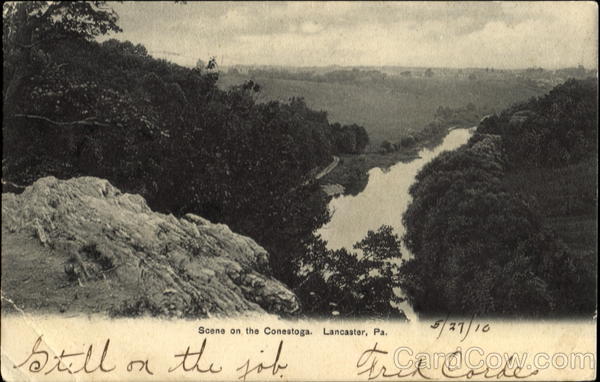 Scene on the Conestoga. Lancaster, Pa.
5/27/10
Still on the job Fred
CardCow.com